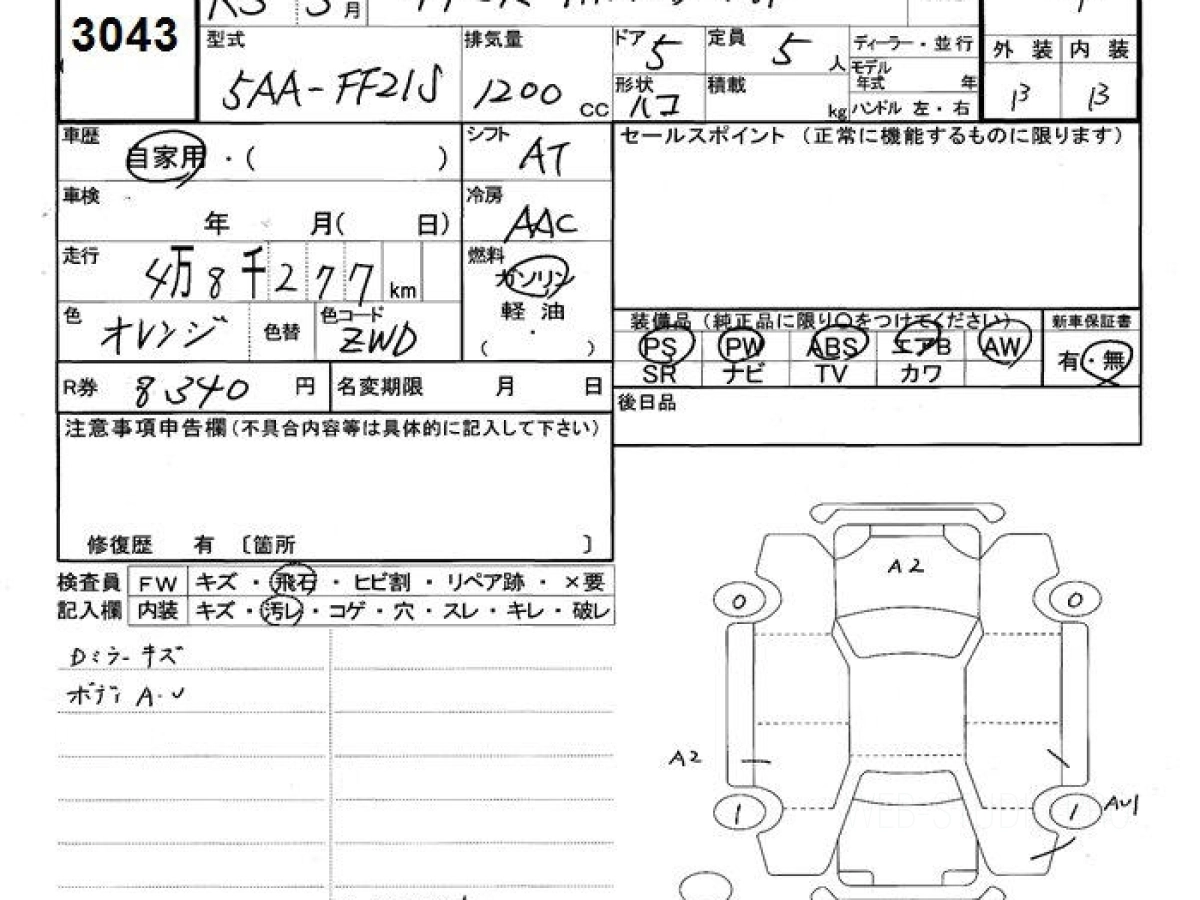 3043
R3 3月
型式 5AA-FF21S
排気量 1200 CC
ドア 5
定員 5 人
形状 ハコ
積載 kg
ディーラー・並行
モデル年式 年
ハンドル 左・右
外装 内装
B B
車歴 自家用・( )
シフト AT
車検 年 月( 日)
冷房 AAC
走行 4万8千277km
燃料 ガソリン
軽油
・
( )
色 オレンジ 色替 色コード ZWD
R券 8340 円 名変期限 月 日
セールスポイント(正常に機能するものに限ります)
装備品(純正品に限り○をつけてください) 新車保証書
PS PW ABS エアB AW 有・無
SR ナビ TV カワ
後日品
注意事項申告欄(不具合内容等は具体的に記入して下さい)
修復歴 有〔箇所 〕
検査員 FW キズ・飛石・ヒビ割・リペア跡・×要
記入欄 内装 キズ・汚レ・コゲ・穴・スレ・キレ・破レ
Dミラーキズ
ボディ A・U
A2
0 0
A2
1 1 AU1